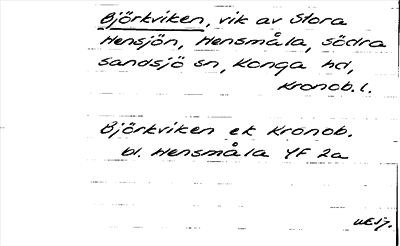 Björkviken, vik av Stora
Hensjön, Hensmåla, södra
sandsjö sn, Konga hd,
Kronob. l.
Björkviken ek Kronob.
bl. Hensmåla YF 2a